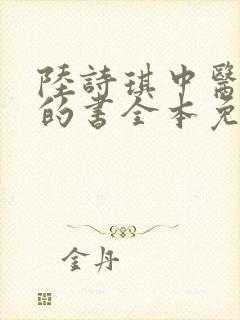 陸詩琪中醫
的書全本免
金丹